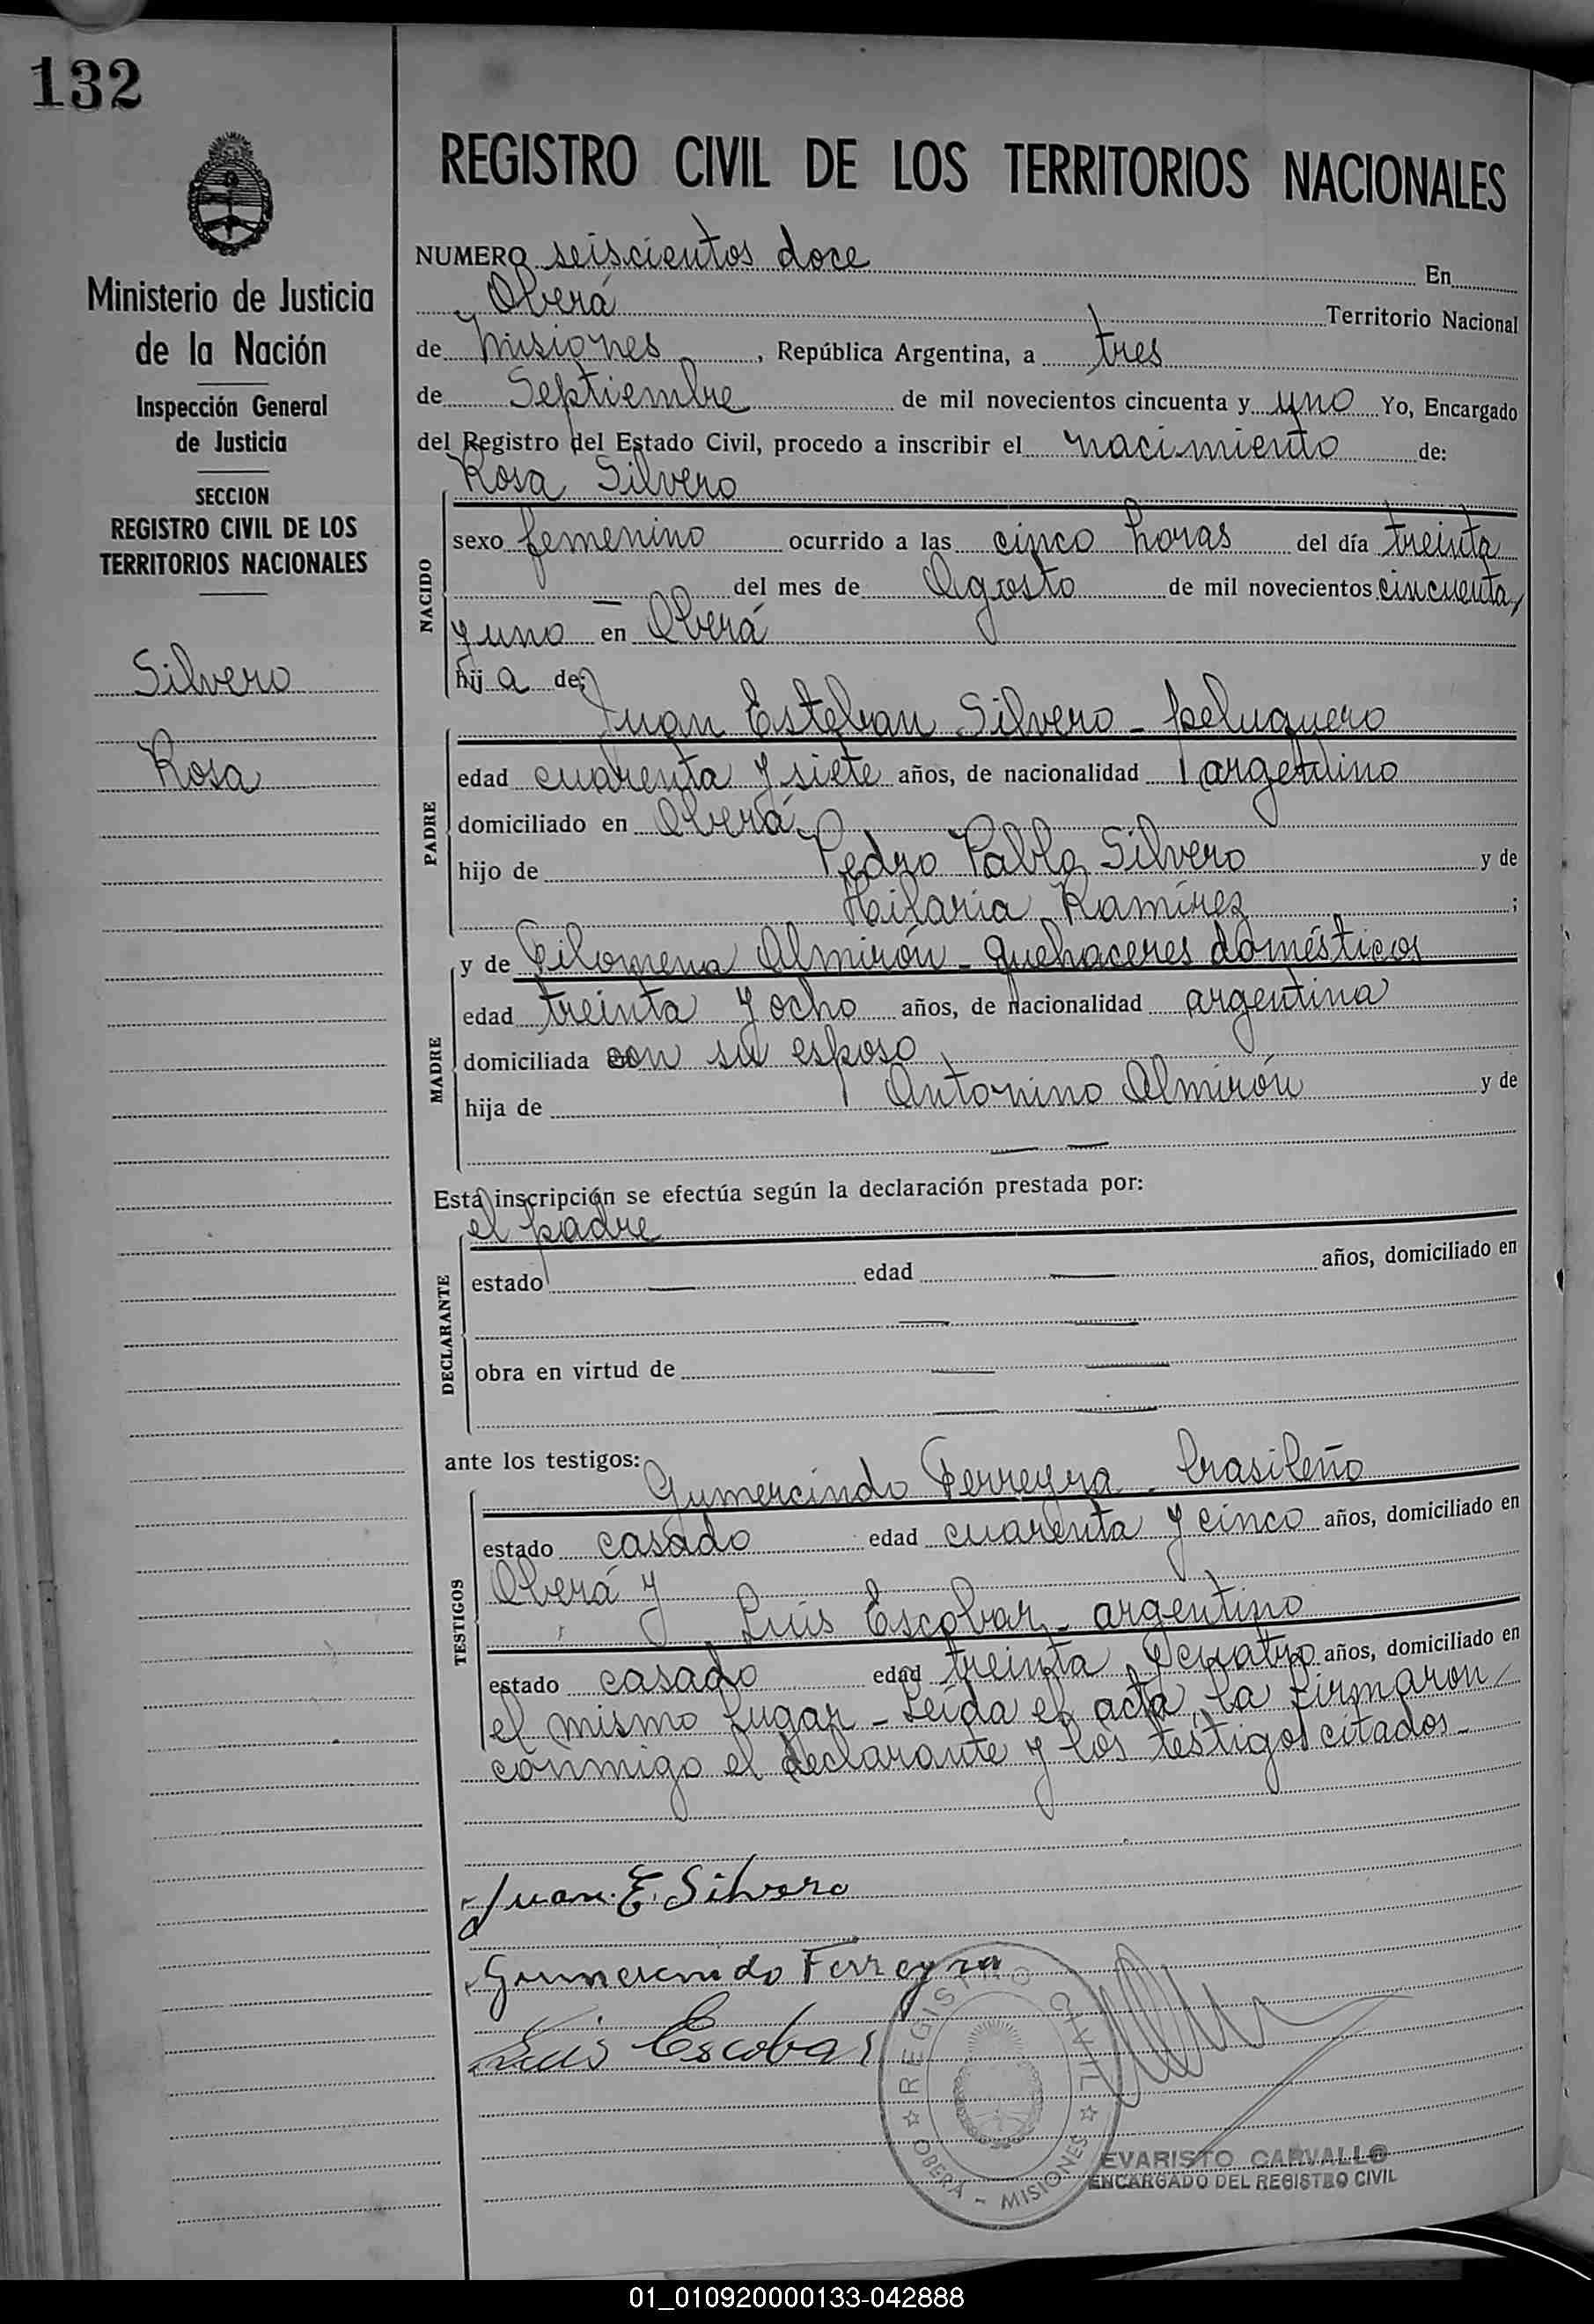 132
Ministerio de Justicia
de la Nación
Inspección General
de Justicia
SECCION
REGISTRO CIVIL DE LOS
TERRITORIOS NACIONALES
Silvero
Rosa
REGISTRO CIVIL DE LOS TERRITORIOS NACIONALES
NUMERO seiscientos doce En
Oberá Territorio Nacional
de Misiones, República Argentina, a tres
de Septiembre de mil novecientos cincuenta y uno Yo, Encargado
del Registro del Estado Civil, procedo a inscribir el nacimiento de:
Rosa Silvero
NACIDO
sexo femenino ocurrido a las cinco horas del día treinta
— del mes de Agosto de mil novecientos cincuenta
y uno en Oberá
hij a de:
Juan Esteban Silvero - peluquero
PADRE
edad cuarenta y siete años, de nacionalidad argentino
domiciliado en Oberá
hijo de Pedro Pablo Silvero y de
Hilaria Ramírez ;
y de Filomena Almirón - quehaceres domésticos
MADRE
edad treinta y ocho años, de nacionalidad argentina
domiciliada con su esposo
hija de Antonino Almirón y de
— —
Esta inscripción se efectúa según la declaración prestada por:
el padre
DECLARANTE
estado — edad — años, domiciliado en
— —
obra en virtud de — —
— —
ante los testigos:
Gumercindo Ferreyra - brasileño
TESTIGOS
estado casado edad cuarenta y cinco años, domiciliado en
Oberá y
Luis Escobar - argentino
estado casado edad treinta y cuatro años, domiciliado en
el mismo lugar - Leída el acta, la firmaron
conmigo el declarante y los testigos citados -
Juan E. Silvero
Gumercindo Ferreyra
Luis Escobar
REGISTRO CIVIL
OBERA - MISIONES
EVARISTO CARVALLO
ENCARGADO DEL REGISTRO CIVIL
01_010920000133-042888